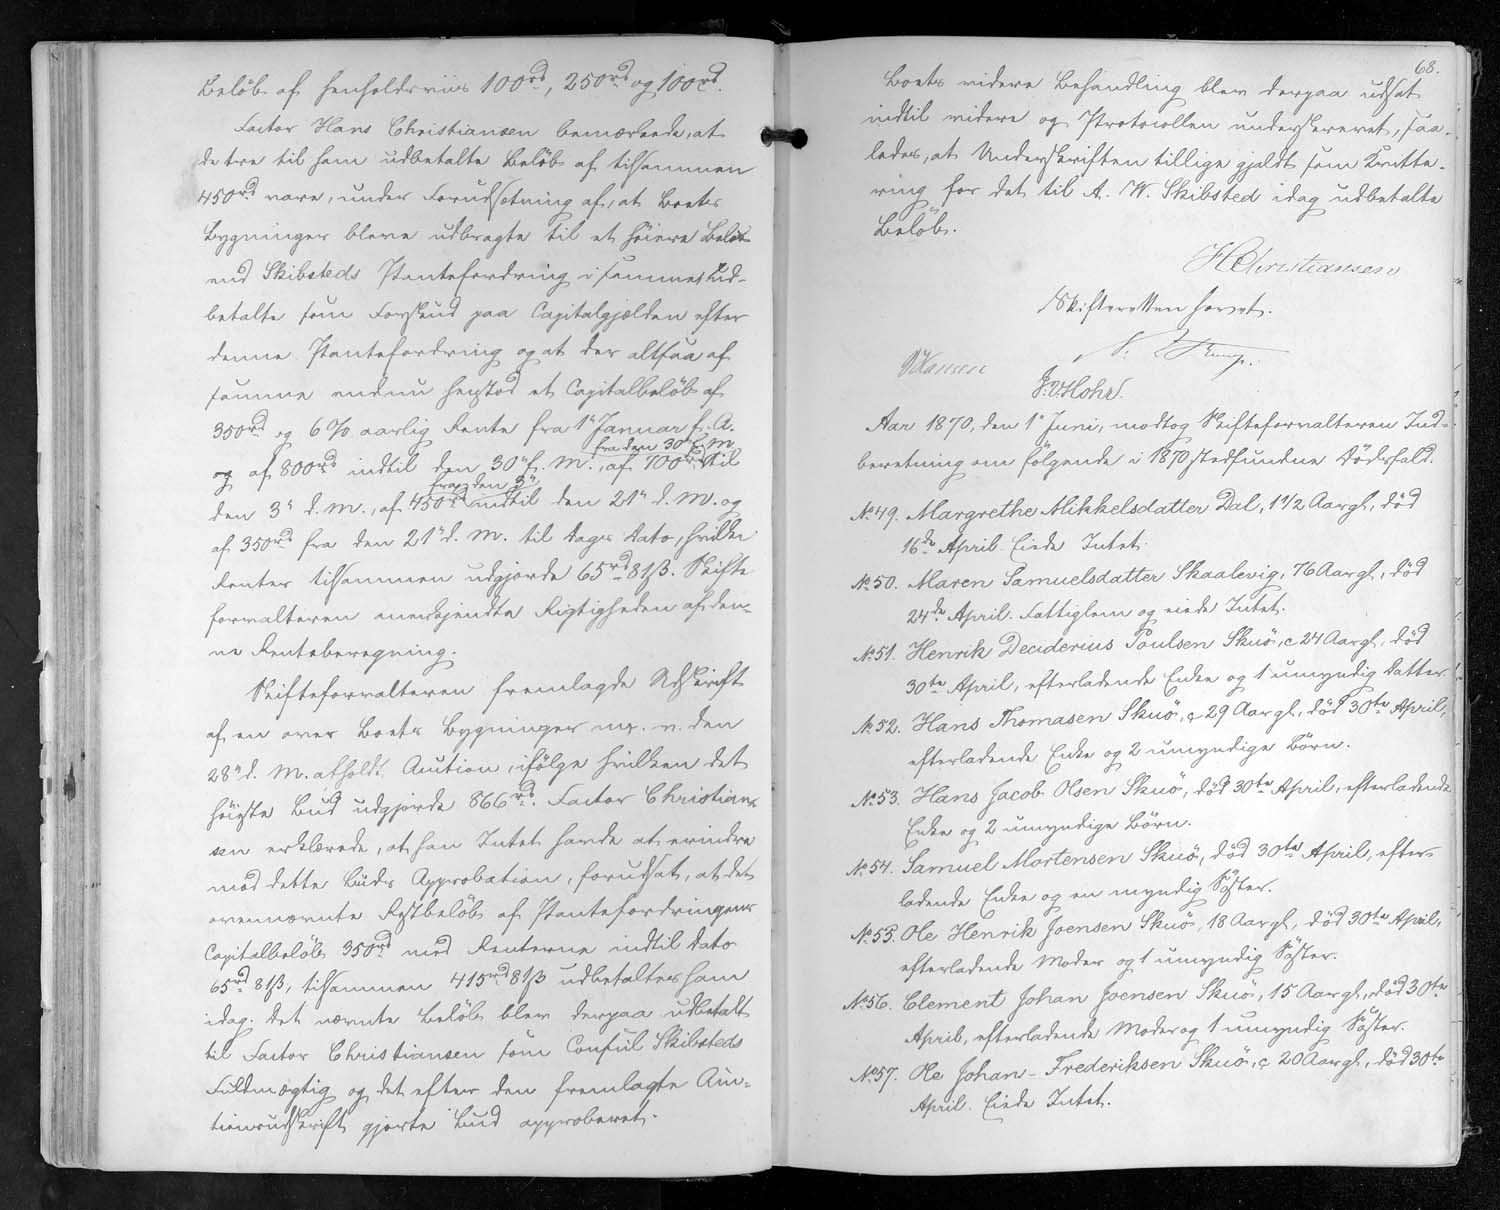 Beløb af henholdsviis 100rd, 250rd og 100rd.
Factor Hans Christiansen bemærkede, at
de tre til ham udbetalte Beløb af tilsammen
450rd vare, under Forudsætning af, at Boets
Bygninger bleve udbragte til et høiere Beløb
end Skibsteds Pantefordring i samme, ud-
betalte som Forskud paa Capitalgjælden efter
denne Pantefordring og at der altsaa af
samme endnu henstod et Capitalbeløb af
350rd og 6% aarlig Rente fra 1ste Januar f. A.
fra den 30te f. M.
og af 800rd indtil den 30te f. M., af 700rd til
fra den 3die
den 3die d. M., af 450rd indtil den 21de d. M. og
af 350rd fra den 21de d. M. til Dags Dato, hvilke
Renter tilsammen udgjorde 65rd 81ß. Skifte-
forvalteren anerkjendte Rigtigheden af den-
ne Renteberegning.
Skifteforvalteren fremlagde Udskrift
af en over Boets Bygninger m. v. den
28de d. M. afholdt Auction, ifølge hvilken det
høieste Bud udgjorde 866rd. Factor Christian-
sen erklærede, at han Intet havde at erindre
mod dette Buds Approbation, forudsat, at det
ovennævnte Restbeløb af Pantefordringens
Capitalbeløb 350rd med Renterne indtil Dato
65rd 81ß, tilsammen 415rd 81ß udbetaltes ham
idag. Det nævnte Beløb blev derpaa udbetalt
til Factor Christiansen som Consul Skibsteds
Fuldmægtig og det efter den fremlagte Auc-
tionsudskrift gjorte Bud approberet.
68.
Boets videre Behandling blev derpaa udsat
indtil videre og Protocollen underskrevet, saa-
ledes, at Underskriften tillige gjaldt som Kvitte-
ring for det til A. W. Skibsted idag udbetalte
Beløb.
HChristiansen
Skifteretten hævet.
Hansen
J. Mohr.
Aar 1870, den 1ste Juni, modtog Skifteforvalteren Ind-
beretning om følgende i 1870 stedfundne Dødsfald.
No 49. Margrethe Mikkelsdatter Dal, 1 1/2 Aar gl., død
16de April. Eiede Intet.
No 50. Maren Samuelsdatter Skaalevig, 76 Aar gl., død
24de April. Fattiglem og eiede Intet.
No 51. Henrik Deciderius Poulsen Skuø, c 24 Aar gl., død
30te April, efterladende Enke og 1 umyndig Datter.
No 52. Hans Thomasen Skuø, c 29 Aar gl., død 30te April,
efterladende Enke og 2 umyndige Børn.
No 53. Hans Jacob Olsen Skuø, død 30te April, efterladende
Enke og 2 umyndige Børn.
No 54. Samuel Mortensen Skuø, død 30te April, efter-
ladende Enke og en myndig Søster.
No 55. Ole Henrik Joensen Skuø, 18 Aar gl., død 30te April,
efterladende Moder og 1 umyndig Søster.
No 56. Clement Johan Joensen Skuø, 15 Aar gl., død 30te
April, efterladende Moder og 1 umyndig Søster.
No 57. Ole Johan Frederiksen Skuø, c 20 Aar gl., død 30te
April. Eiede Intet.